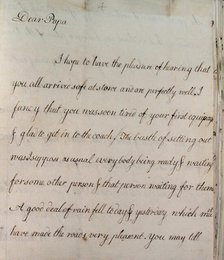 Dear Papa
I hope to have the pleasure of hearing that
you all arrive safe at stowe and are perfectly well. I
fancy that you was soon tired of your first equipage
& glad to get in to the coach, The bustle of setting out
was I suppose as usual every body being ready & waiting
for some other person & that person waiting for them
A good deal of rain fell to day & yesterday which will
have made the roads very pleasant. You may tell